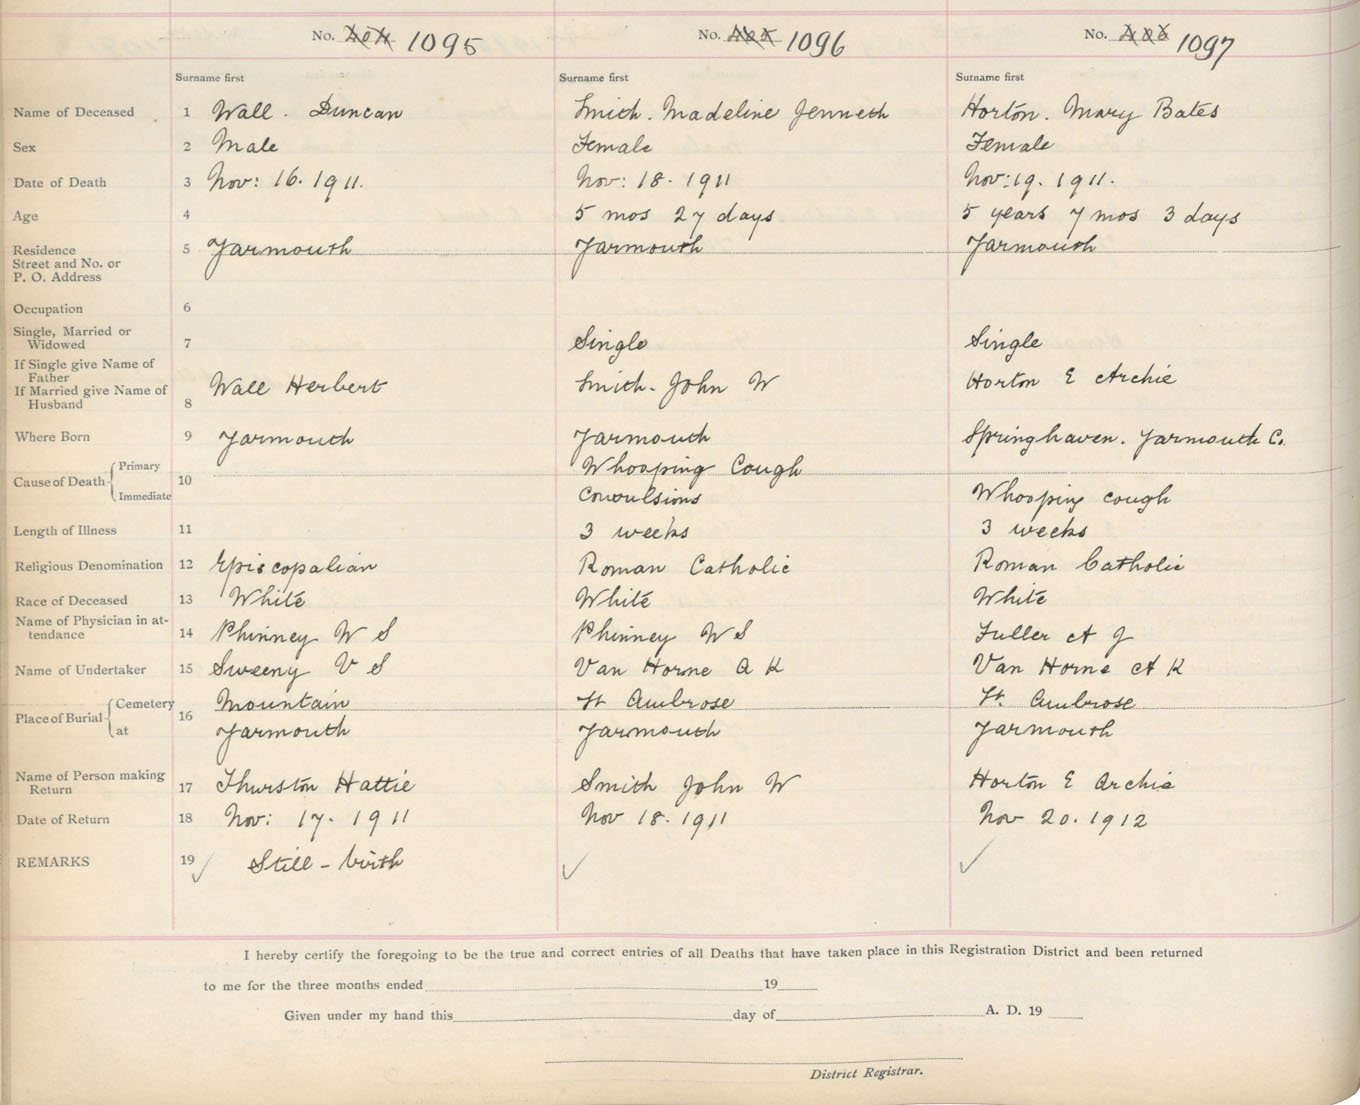 No. 1095 No. 1096 No. 1097
Surname first Surname first Surname first
Name of Deceased 1 Wall. Duncan Smith. Madeline Jenneth Horton. Mary Bates
Sex 2 Male Female Female
Date of Death 3 Nov: 16. 1911. Nov: 18. 1911 Nov: 19. 1911.
Age 4 5 mos 27 days 5 years 7 mos 3 days
Residence 5 Yarmouth Yarmouth Yarmouth
Street and No. or
P. O. Address
Occupation 6
Single, Married or
Widowed 7 Single Single
If Single give Name of
Father
If Married give Name of Wall Herbert Smith. John W Horton E Archie
Husband 8
Where Born 9 Yarmouth Yarmouth Springhaven. Yarmouth Co.
Primary Whooping Cough
Cause of Death 10
Immediate Convulsions Whooping cough
Length of Illness 11 3 weeks 3 weeks
Religious Denomination 12 Episcopalian Roman Catholic Roman Catholic
Race of Deceased 13 White White White
Name of Physician in at-
tendance 14 Phinney W S Phinney W S Fuller A J
Name of Undertaker 15 Sweeny V S Van Horne A K Van Horne A K
Cemetery Mountain St Ambrose St. Ambrose
Place of Burial 16
at Yarmouth Yarmouth Yarmouth
Name of Person making
Return 17 Thurston Hattie Smith John W Horton E Archie
Date of Return 18 Nov: 17. 1911 Nov 18. 1911 Nov 20. 1912
REMARKS 19 Still-birth
I hereby certify the foregoing to be the true and correct entries of all Deaths that have taken place in this Registration District and been returned
to me for the three months ended 19
Given under my hand this day of A. D. 19
District Registrar.